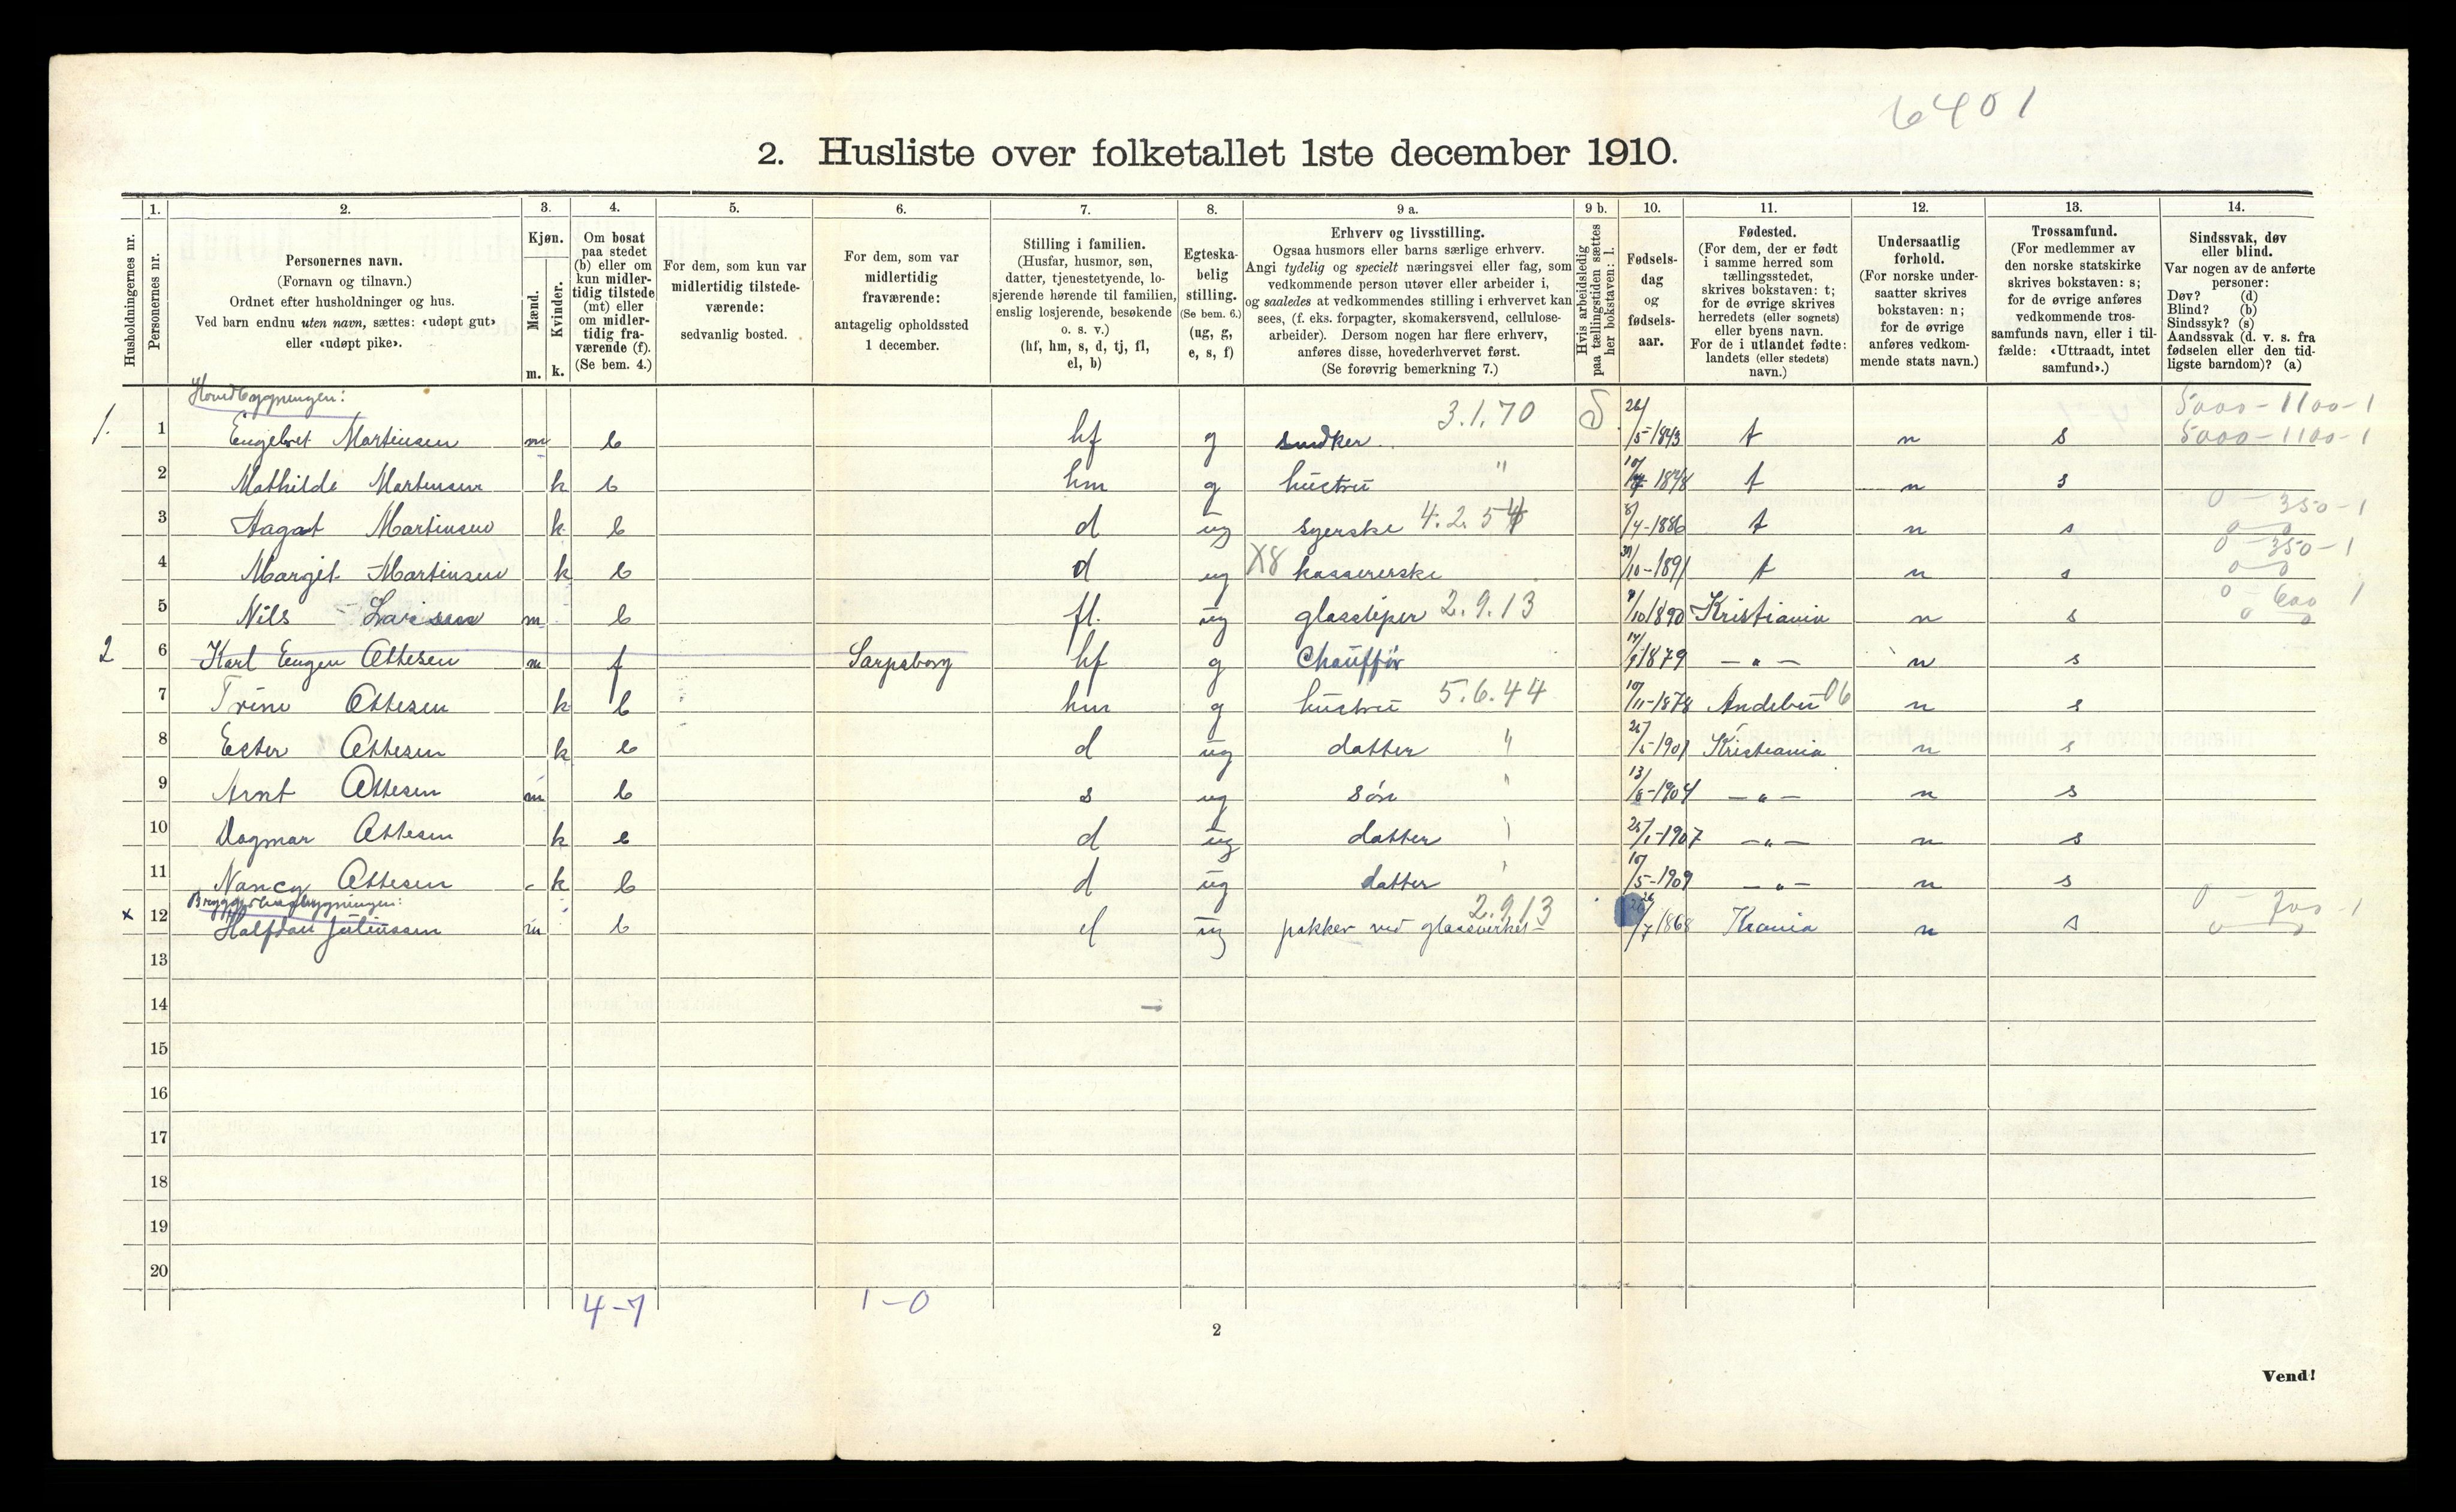 6401
2. Husliste over folketallet 1ste december 1910.
Husholdningernes nr.
1. Personernes nr.
2. Personernes navn.
(Fornavn og tilnavn.)
Ordnet efter husholdninger og hus.
Ved barn endnu uten navn, sættes: «udøpt gut»
eller «udøpt pike».
3. Kjøn.
Mænd. m.
Kvinder. k.
4. Om bosat
paa stedet
(b) eller om
kun midler-
tidig tilstede
(mt) eller
om midler-
tidig fra-
værende (f).
(Se bem. 4.)
5. For dem, som kun var
midlertidig tilstede-
værende:
sedvanlig bosted.
6. For dem, som var
midlertidig
fraværende:
antagelig opholdssted
1 december.
7. Stilling i familien.
(Husfar, husmor, søn,
datter, tjenestetyende, lo-
sjerende hørende til familien,
enslig losjerende, besøkende
o. s. v.)
(hf, hm, s, d, tj, fl,
el, b)
8. Egteska-
belig
stilling.
(Se bem. 6.)
(ug, g,
e, s, f)
9 a. Erhverv og livsstilling.
Ogsaa husmors eller barns særlige erhverv.
Angi tydelig og specielt næringsvei eller fag, som
vedkommende person utøver eller arbeider i,
og saaledes at vedkommendes stilling i erhvervet kan
sees, (f. eks. forpagter, skomakersvend, cellulose-
arbeider). Dersom nogen har flere erhverv,
anføres disse, hovederhvervet først.
(Se forøvrig bemerkning 7.)
9 b. Hvis arbeidsledig
paa tællingstiden sættes
her bokstaven: l.
10. Fødsels-
dag
og
fødsels-
aar.
11. Fødested.
(For dem, der er født
i samme herred som
tællingsstedet,
skrives bokstaven: t;
for de øvrige skrives
herredets (eller sognets)
eller byens navn.
For de i utlandet fødte:
landets (eller stedets)
navn.)
12. Undersaatlig
forhold.
(For norske under-
saatter skrives
bokstaven: n;
for de øvrige
anføres vedkom-
mende stats navn.)
13. Trossamfund.
(For medlemmer av
den norske statskirke
skrives bokstaven: s;
for de øvrige anføres
vedkommende tros-
samfunds navn, eller i til-
fælde: «Uttraadt, intet
samfund».)
14. Sindssvak, døv
eller blind.
Var nogen av de anførte
personer:
Døv? (d)
Blind? (b)
Sindssyk? (s)
Aandssvak (d. v. s. fra
fødselen eller den tid-
ligste barndom)? (a)
Hovedbygningen:
3.1.70 5000-1100-1
1. 1 Engebret Martinsen m b hf g snedker 26/5-1843 t n s 5000-1100-1
2 Mathilde Martinsen k b hm g hustru " 1848 t n s
0 - 350-1
3 Aagot Martinsen k b d ug syerske 4.2.54 8/4-1886 t n s 0-0
0-350-1
4 Margit Martinsen k b d ug X8 kassererske 30/10-1891 t n s 0-0
0-600-1
5 Nils Larssen m b fl. ug glassliper 2.9.13 9/10 1890 Kristiania n s 0 0
2 6 Karl Eugen Ottesen m f Sarpsborg hf g Chauffør 1879 - " - n s
7 Trine Ottesen k b hm g hustru 5.6.44 10/11-1878 Andebu 06 n s
8 Ester Ottesen k b d ug datter " 26/5-1901 Kristiania n s
9 Arnt Ottesen m b s ug søn " 13/8-1904 - " - n s
10 Dagmar Ottesen k b d ug datter " 25/1-1907 - " - n s
11 Nancy Ottesen k b d ug datter " 10/5-1909 - " - n s
Bryggerhusbygningen:
2.9.13 0-700-1
x 12 Halfdan Juliussen m b el ug pakker ved glassverket 26/7 1868 Krania n s 0-0
13
14
15
16
17
18
19
20
4-7 1-0
2
Vend!